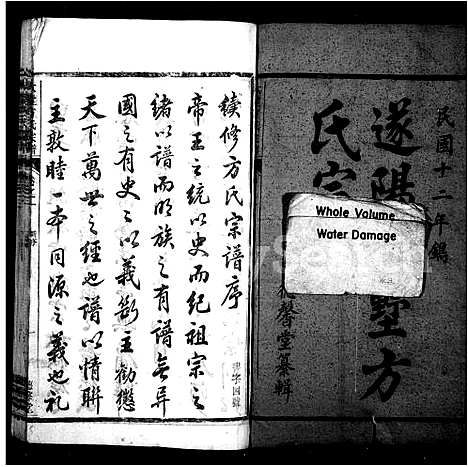 民國十二年鐫
遂陽
墅方
氏宗
馨堂纂輯
Whole Volume
Water Damage
續修方氏宗譜序
帝王之統以史而紀祖宗之
緒以譜而明族之有譜無異
國之有史之以義彰王勸懲
天下萬世之經也譜以情聯
主敦睦一本同源之義也礼